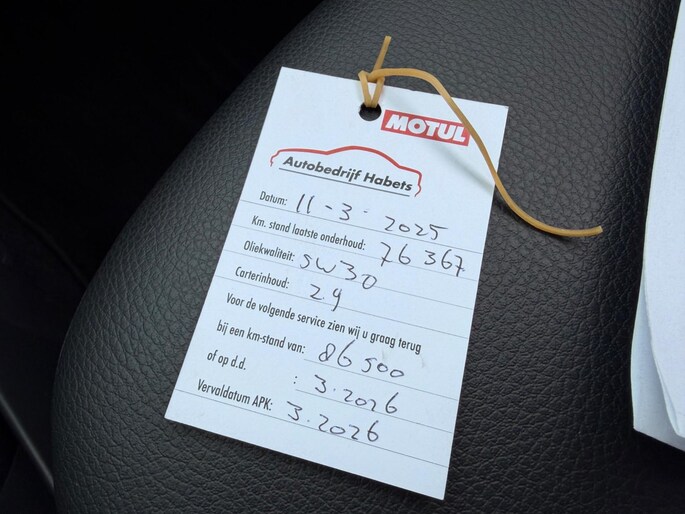 MOTUL
Autobedrijf Habets
Datum: 11-3-2025
Km. stand laatste onderhoud: 76 367
Oliekwaliteit: 5W30
Carterinhoud: 2,9
Voor de volgende service zien wij u graag terug
bij een km-stand van: 86 500
of op d.d. : 3.2026
Vervaldatum APK: 3.2026